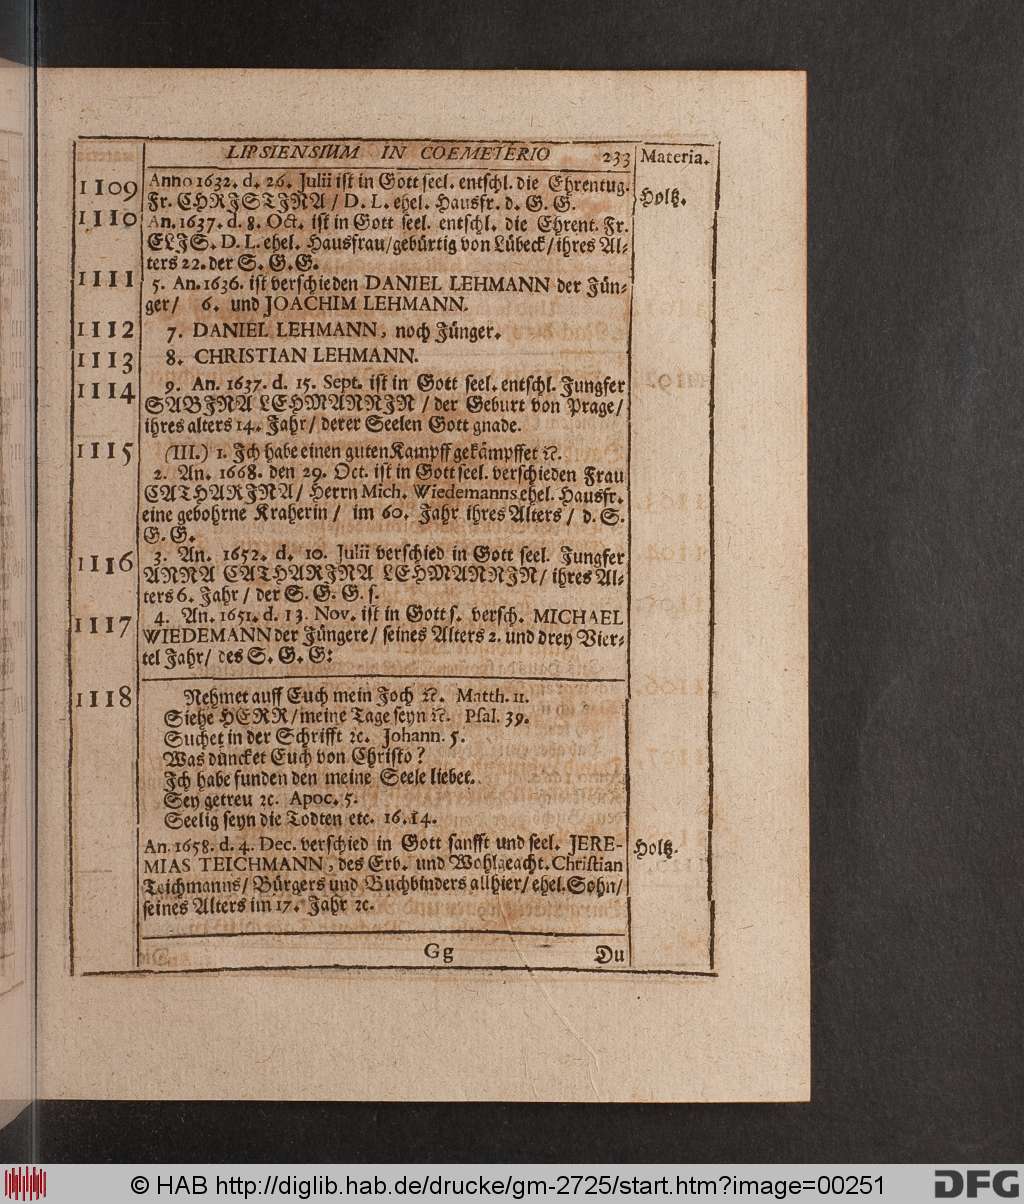 LIPSIENSIUM IN COEMETERIO 233 Materia.
1109 Anno 1632. d. 26. Julii ist in Gott seel. entschl. die Ehrentug.
Fr. CHRISTINA / D. L. ehel. Hausfr. d. G. G. Holtz.
1110 An. 1637. d. 8. Oct. ist in Gott seel. entschl. die Ehrent. Fr.
ELIS. D. L. ehel. Hausfrau / gebürtig von Lübeck / ihres Al-
ters 22. der S. G. G.
1111 5. An. 1636. ist verschieden DANIEL LEHMANN der Jün-
ger / 6. und JOACHIM LEHMANN.
1112 7. DANIEL LEHMANN, noch Jünger.
1113 8. CHRISTIAN LEHMANN.
1114 9. An. 1637. d. 15. Sept. ist in Gott seel. entschl. Jungfer
SABINA LEHMANNIN / der Geburt von Prage /
ihres alters 14. Jahr / derer Seelen Gott gnade.
1115 (III.) 1. Ich habe einen guten Kampff gekämpffet ꝛc.
2. An. 1668. den 29. Oct. ist in Gott seel. verschieden Frau
CATHARINA / Herrn Mich. Wiedemanns ehel. Hausfr.
eine gebohrne Kraherin / im 60. Jahr ihres Alters / d. S.
G. G.
1116 3. An. 1652. d. 10. Julii verschied in Gott seel. Jungfer
ANNA CATHARINA LEHMANNIN / ihres Al-
ters 6. Jahr / der S. G. G. s.
1117 4. An. 1651. d. 13. Nov. ist in Gott s. versch. MICHAEL
WIEDEMANN der Jüngere / seines Alters 2. und drey Vier-
tel Jahr / des S. G. G:
1118 Nehmet auff Euch mein Joch ꝛc. Matth. 11.
Siehe HERR / meine Tage seyn ꝛc. Psal. 39.
Suchet in der Schrifft ꝛc. Johann. 5.
Was düncket Euch von Christo ?
Ich habe funden den meine Seele liebet.
Sey getreu ꝛc. Apoc. 5.
Seelig seyn die Todten etc. 16. 14.
An. 1658. d. 4. Dec. verschied in Gott sanfft und seel. JERE- Holtz.
MIAS TEICHMANN, des Erb. und Wohlgeacht. Christian
Teichmanns / Bürgers und Buchbinders allhier / ehel. Sohn /
seines Alters im 17. Jahr ꝛc.
Gg Du
© HAB http://diglib.hab.de/drucke/gm-2725/start.htm?image=00251
DFG